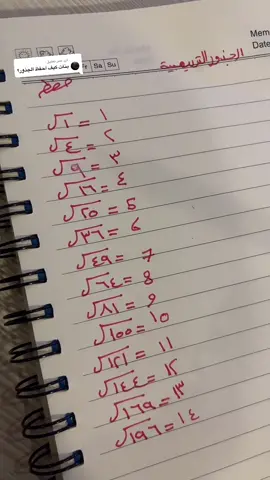 Mem
Date
Sa Su
بنات كيف احفظ الجذور؟
الجذور التربيعية
حفظ
√١ = ١
√٤ = ٢
√٩ = ٣
√١٦ = ٤
√٢٥ = 5
√٣٦ = 6
√٤٩ = 7
√٦٤ = 8
√٨١ = 9
√١٠٠ = 10
√١٢١ = 11
√١٤٤ = ١٢
√١٦٩ = ١٣
√١٩٦ = ١٤